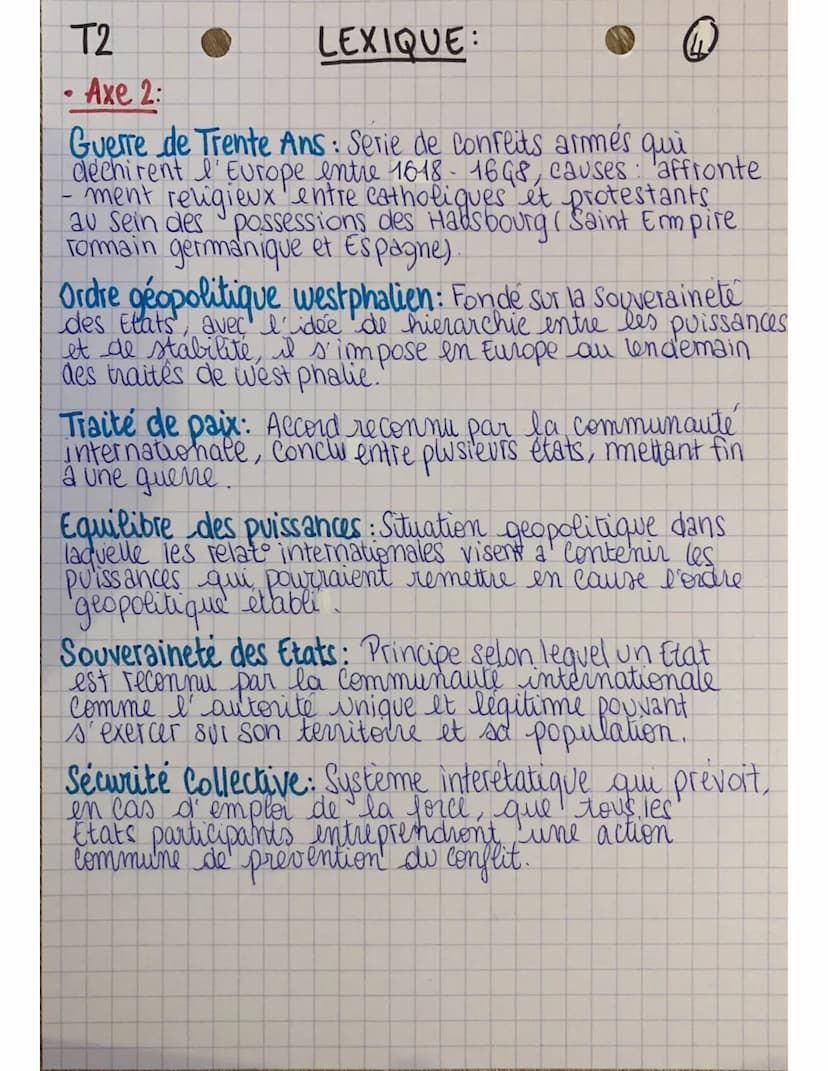 T2 LEXIQUE: 4
• Axe 2:
Guerre de Trente Ans : Série de conflits armés qui
déchirent l'Europe entre 1618 - 1648, causes : affronte
- ment religieux entre catholiques et protestants
au sein des possessions des Habsbourg (Saint Empire
romain germanique et Espagne).
Ordre géopolitique westphalien : Fondé sur la Souveraineté
des Etats, avec l'idée de hierarchie entre les puissances
et de stabilité, il s'impose en Europe au lendemain
des traités de west phalie.
Traité de paix : Accord reconnu par la communauté
internationale, conclu entre plusieurs états, mettant fin
à une guerre.
Equilibre des puissances : Situation geopolitique dans
laquelle les relat° internationales visent à contenir les
puissances qui pourraient remettre en cause l'ordre
geopolitique établi.
Souveraineté des Etats : Principe selon lequel un Etat
est reconnu par la communauté internationale
comme l'autorité unique et légitime pouvant
s'exercer sur son territoire et sa population.
Sécurité Collective : Système interétatique qui prévoit,
en cas d'emploi de la force, que tous les
Etats participants entreprendront une action
commune de prévention du conflit.